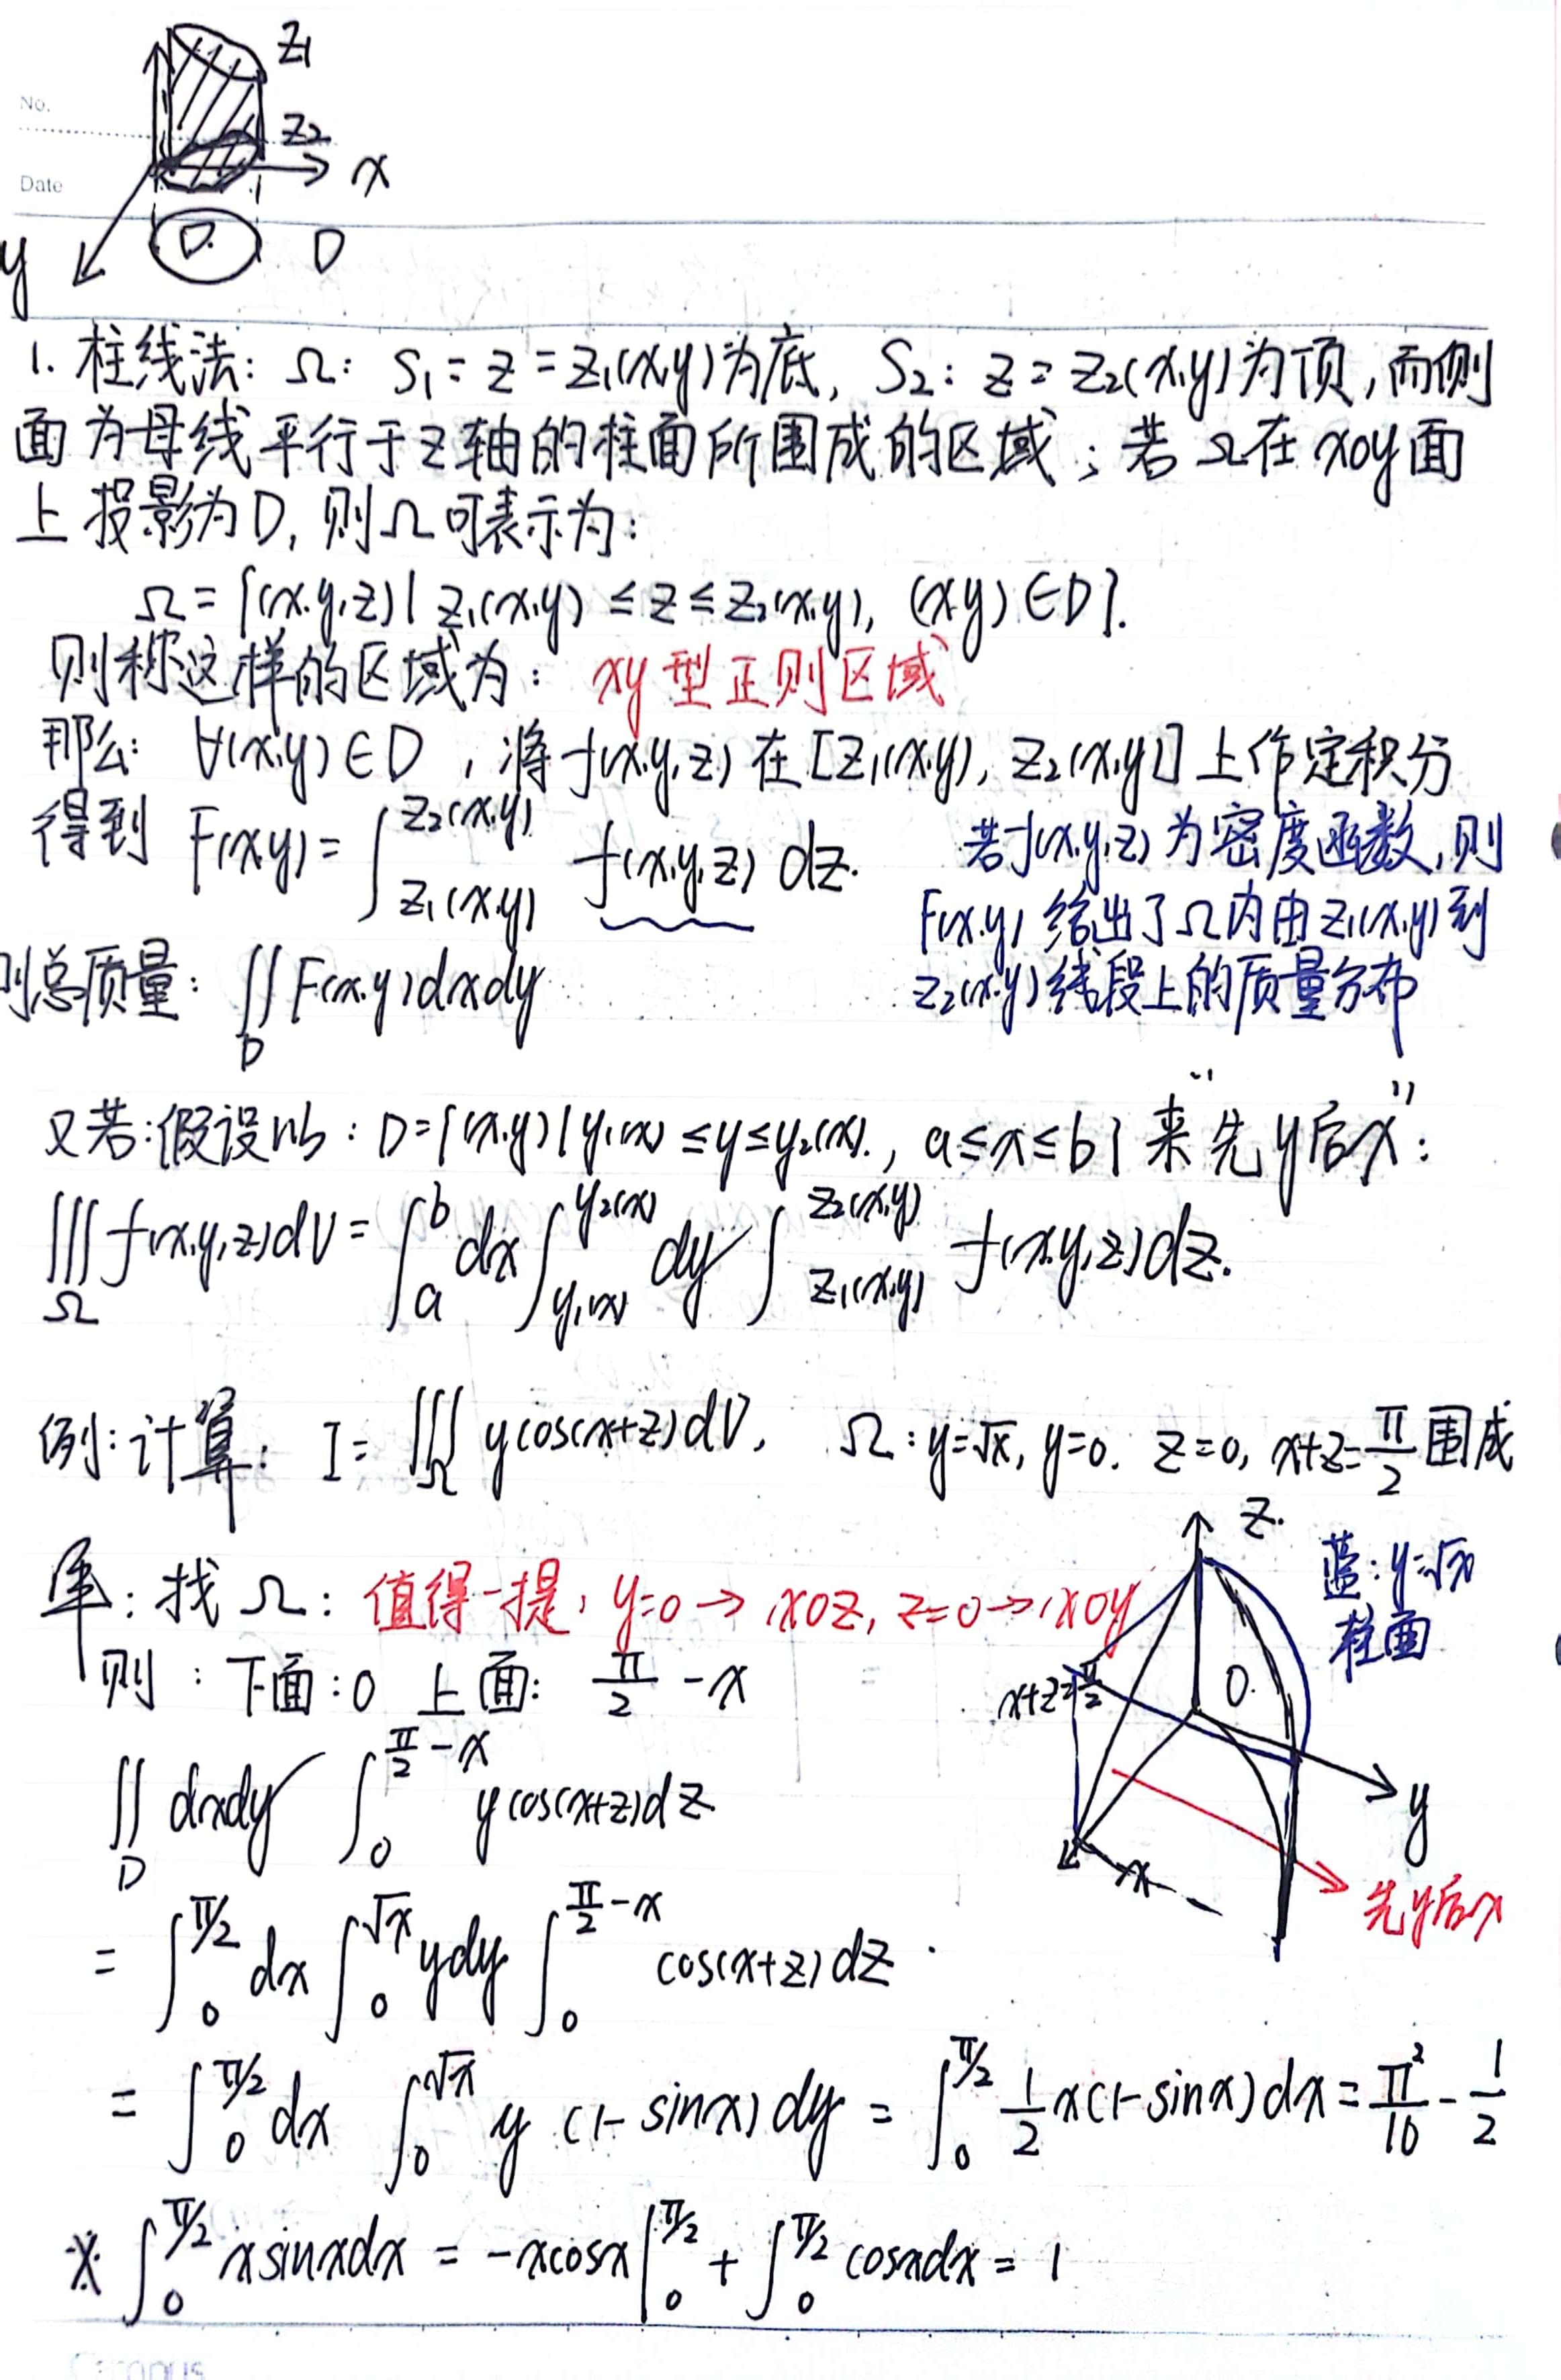 No.
Date
Z1
Z2
x
y
D
D
1. 柱线法: Ω: S₁: z = z₁(x,y)为底, S₂: z = z₂(x,y)为顶,而侧
面为母线平行于z轴的柱面所围成的区域;若Ω在xoy面
上投影为D,则Ω可表示为:
Ω = {(x,y,z) | z₁(x,y) ≤ z ≤ z₂(x,y), (x,y) ∈ D}.
则称这样的区域为: xy型正则区域
那么: ∀(x,y) ∈ D ,将f(x,y,z)在[z₁(x,y), z₂(x,y)]上作定积分
得到 F(x,y) = ∫_{z₁(x,y)}^{z₂(x,y)} f(x,y,z) dz.
若f(x,y,z)为密度函数,则
F(x,y)给出了Ω内由z₁(x,y)到
z₂(x,y)线段上的质量分布
则总质量: ∬_D F(x,y)dxdy
又若:假设以: D={(x,y) | y₁(x) ≤ y ≤ y₂(x), a≤x≤b} 来“先y后x”:
∭_Ω f(x,y,z)dV = ∫_a^b dx ∫_{y₁(x)}^{y₂(x)} dy ∫_{z₁(x,y)}^{z₂(x,y)} f(x,y,z)dz.
例:计算: I= ∭_Ω ycos(x+z)dV, Ω: y=√x, y=0. z=0, x+z=π/2 围成
解: 找Ω: 值得一提, y=0 → xOz, z=0 → xOy
则: 下面: 0 上面: π/2 - x
z.
蓝: y=√x
柱面
x+z=π/2
O.
y
x
先y后x
∬_D dxdy ∫_0^{π/2 - x} ycos(x+z)dz
= ∫_0^{π/2} dx ∫_0^{√x} ydy ∫_0^{π/2 - x} cos(x+z)dz.
= ∫_0^{π/2} dx ∫_0^{√x} y (1- sinx) dy = ∫_0^{π/2} 1/2 x(1-sinx)dx = π²/16 - 1/2
※ ∫_0^{π/2} xsinxdx = -xcosx |_0^{π/2} + ∫_0^{π/2} cosxdx = 1
Campus